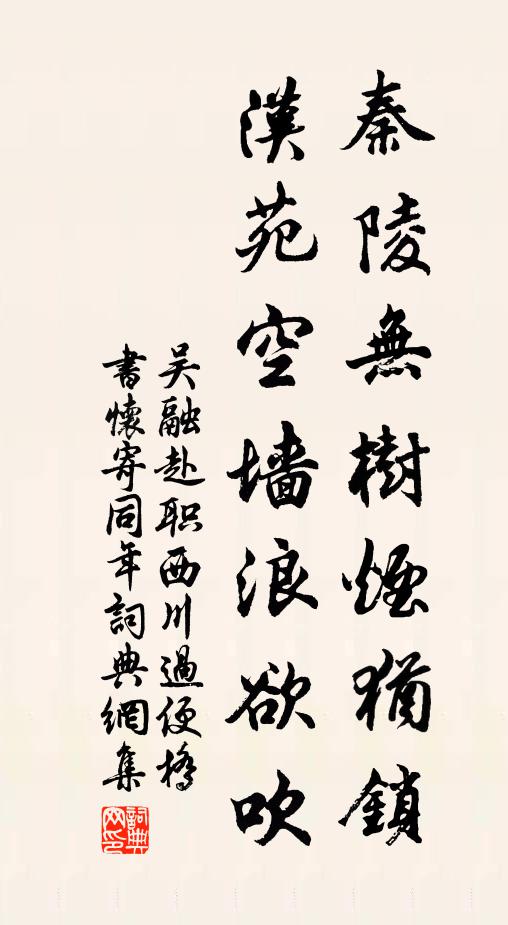 秦陵無樹煙猶鎖
漢苑空墻浪欲吹
吴融赴职西川過便橋
書懷寄同年詞典網集
詞典
网印